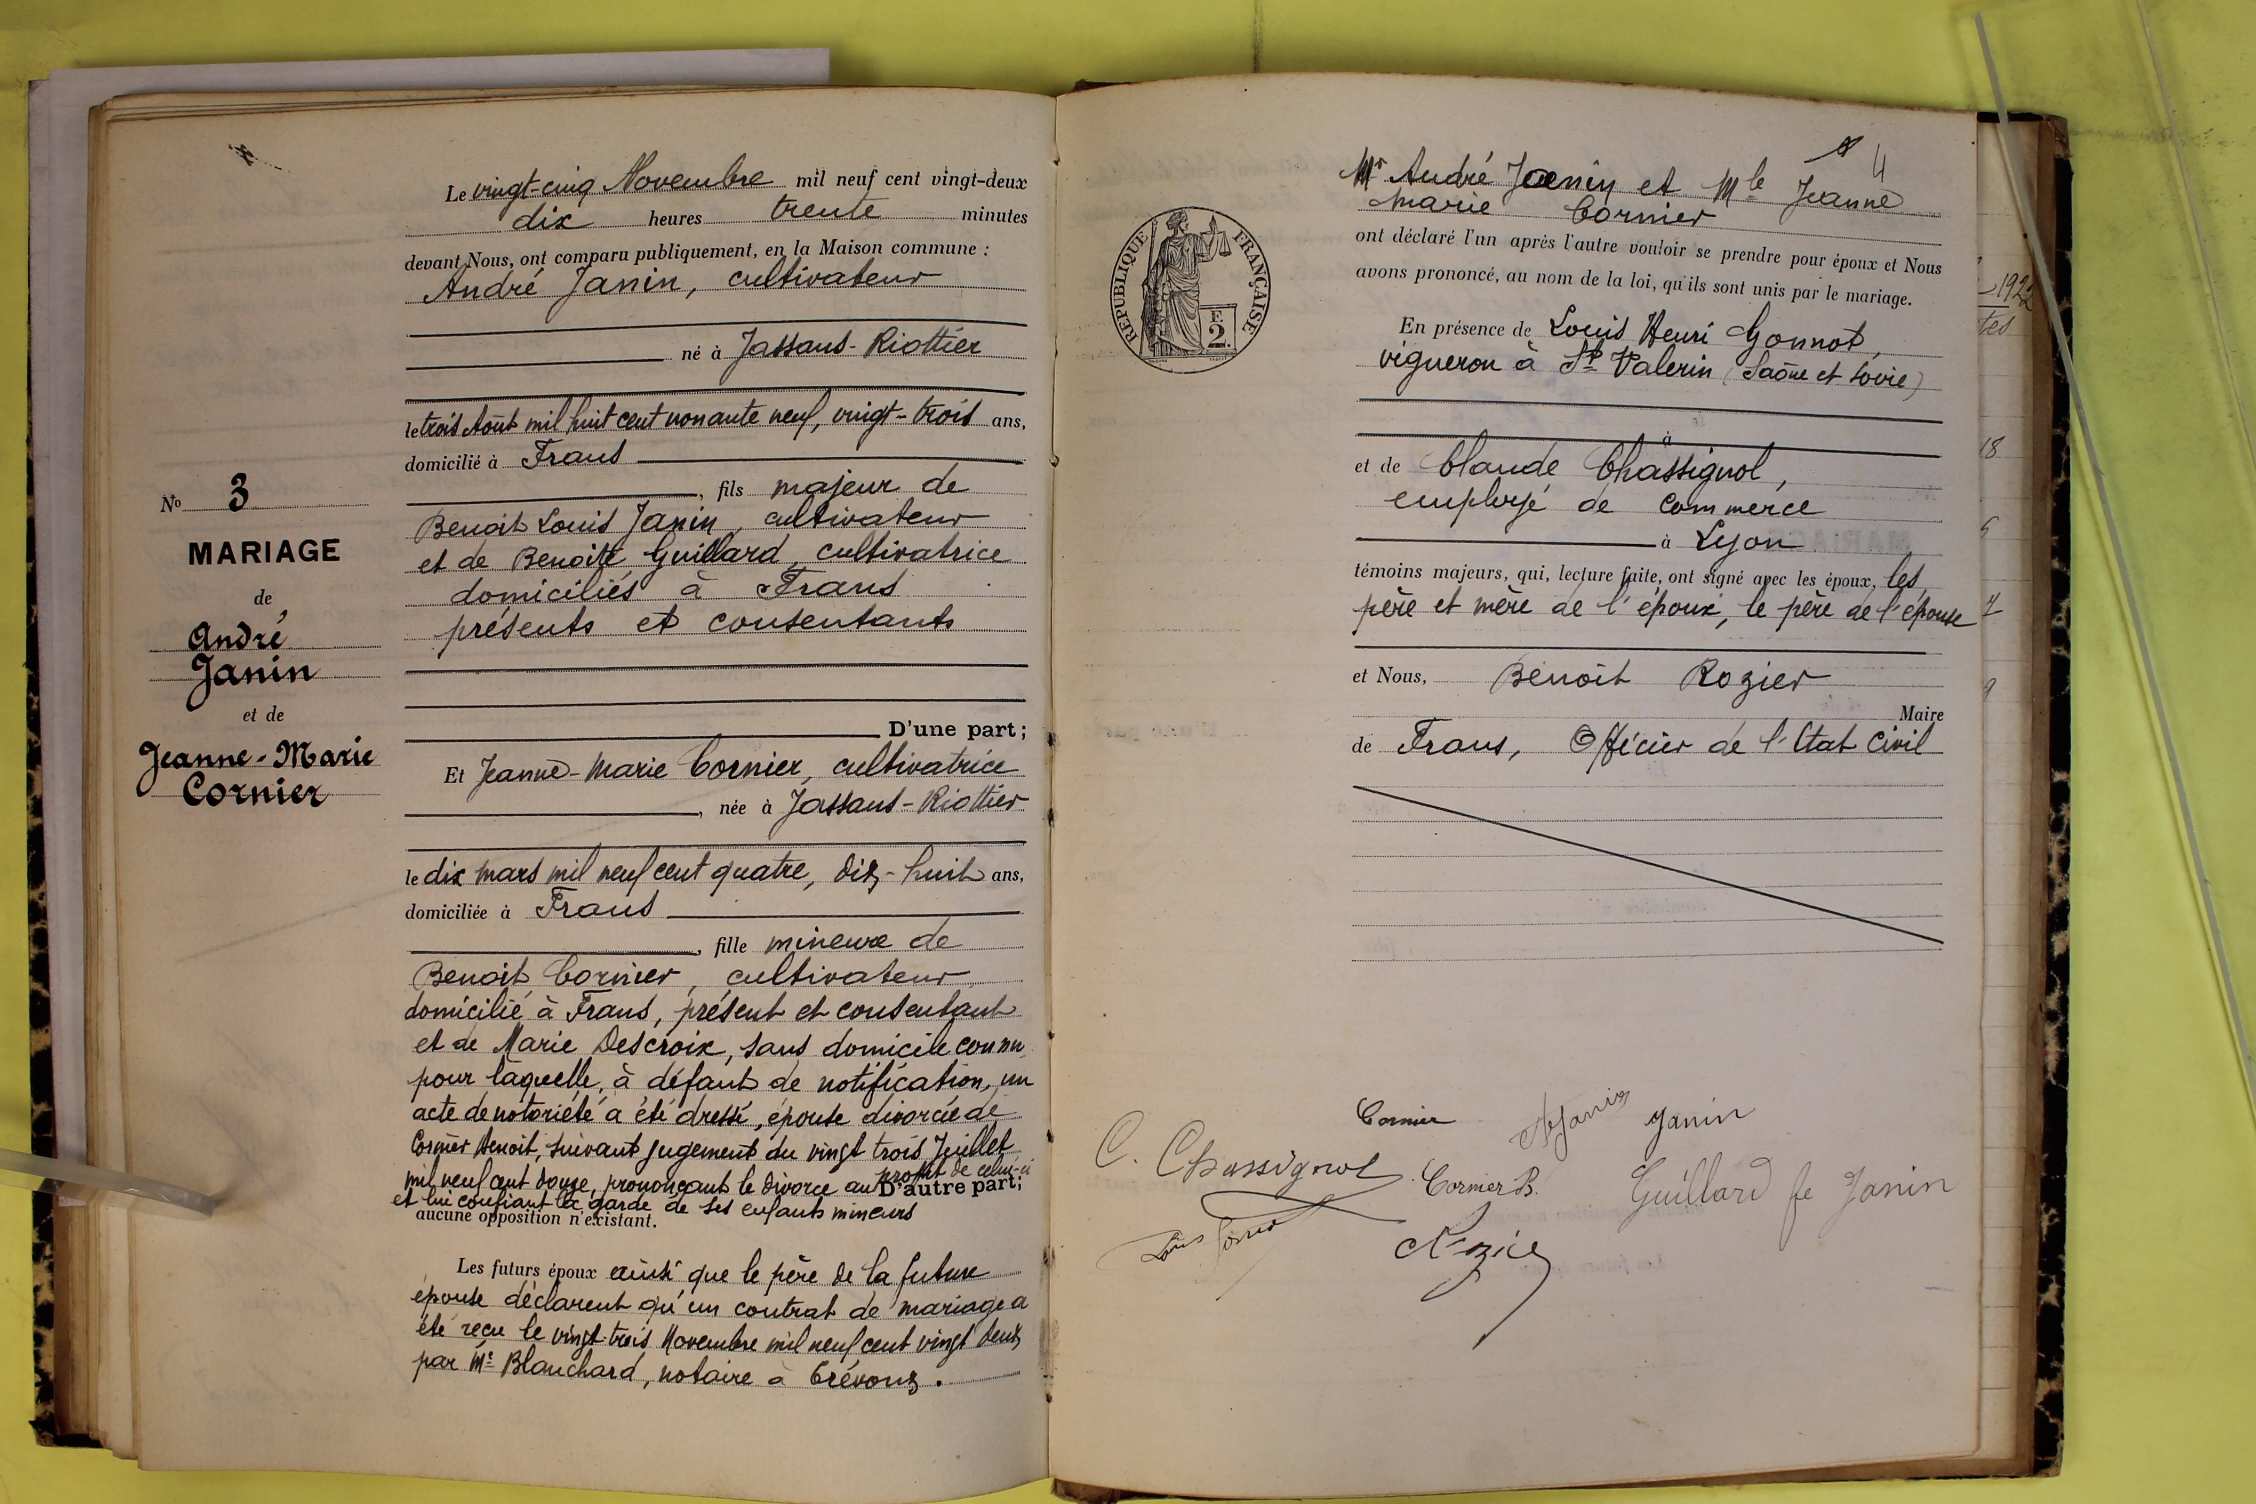 Nº 3
MARIAGE
de
André
Janin
et de
Jeanne-Marie
Cornier
Le vingt-cinq Novembre mil neuf cent vingt-deux
dix heures trente minutes
devant Nous, ont comparu publiquement, en la Maison commune :
André Janin, cultivateur
né à Jassans-Riottier
le trois Août mil huit cent nonante neuf, vingt-trois ans,
domicilié à Frans
, fils majeur de
Benoit Louis Janin, cultivateur
et de Benoite Guillard, cultivatrice
domiciliés à Frans
présents et consentants
D'une part;
Et Jeanne-Marie Cornier, cultivatrice
, née à Jassans-Riottier
le dix mars mil neuf cent quatre, dix-huit ans,
domiciliée à Frans
, fille mineure de
Benoit Cornier, cultivateur
domicilié à Frans, présent et consentant
et de Marie Descroix, sans domicile connu
pour laquelle, à défaut de notification, un
acte de notoriété a été dressé, épouse divorcée de
Cornier Benoit, suivant jugement du vingt trois Juillet
mil neuf cent douze, prononçant le divorce au profit de celui-ci
D'autre part;
et lui confiant la garde de ses enfants mineurs
aucune opposition n'existant.
Les futurs époux ainsi que le père de la future
épouse déclarent qu'un contrat de mariage a
été reçu le vingt-trois Novembre mil neuf cent vingt deux
par Me Blanchard, notaire à Trévoux.
4
Mr André Janin et Mle Jeanne
Marie Cornier
ont déclaré l'un après l'autre vouloir se prendre pour époux et Nous
avons prononcé, au nom de la loi, qu'ils sont unis par le mariage.
RÉPUBLIQUE FRANÇAISE
F.
2.
En présence de Louis Henri Gonnot,
vigneron à St Valerin (Saône et Loire)
à
et de Claude Chassignol,
employé de commerce
à Lyon
témoins majeurs, qui, lecture faite, ont signé avec les époux, les
père et mère de l'époux, le père de l'épouse
et Nous, Benoit Rozier
Maire
de Frans, Officier de l'Etat Civil
Cornier A Janin Janin
C. Chassignol Cornier B. Guillard fe Janin
Louis Rozier
1922
tes
18